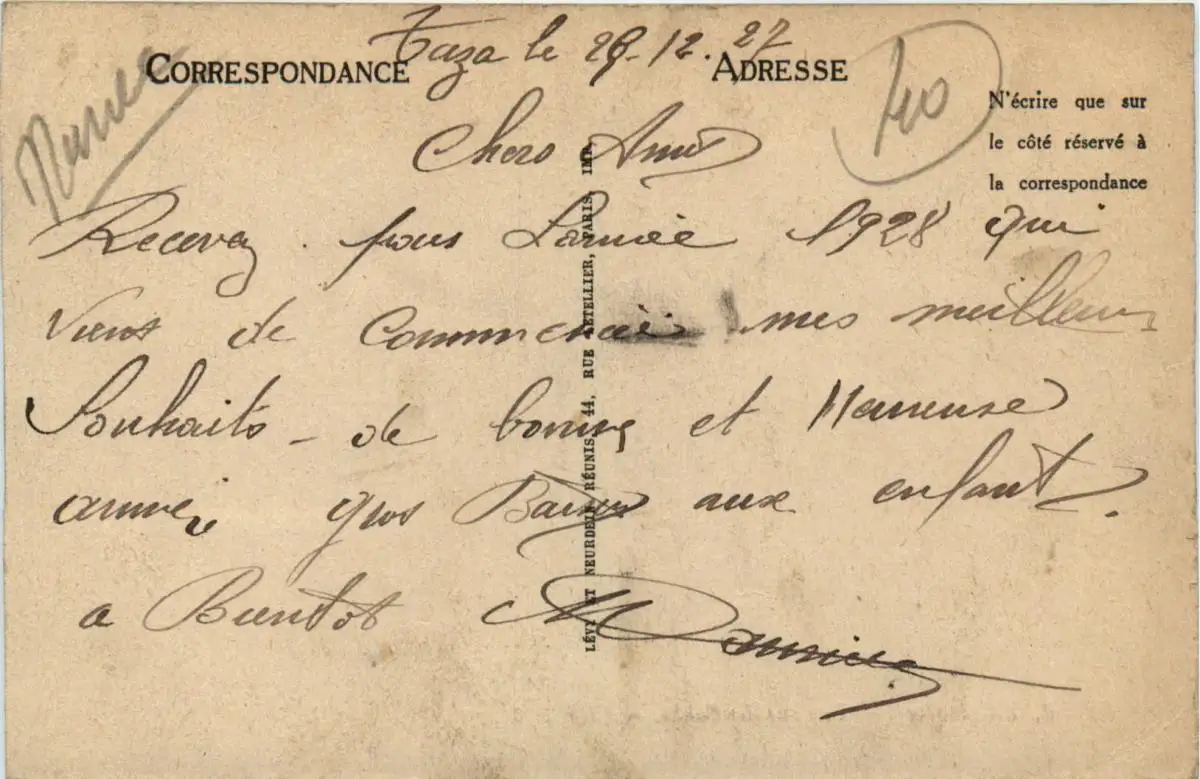 Taza le 28-12.27
CORRESPONDANCE
ADRESSE
Maroc
40
N'écrire que sur
le côté réservé à
la correspondance
Chers Amis
Recevez pour L'année 1928 qui
viens de commencer mes meilleurs
Souhaits - de bonne et Heureuse
année gros Baisers aux enfants.
a Bientot
LÉVY ET NEURDEIN RÉUNIS, 44, RUE LETELLIER, PARIS, IMP.